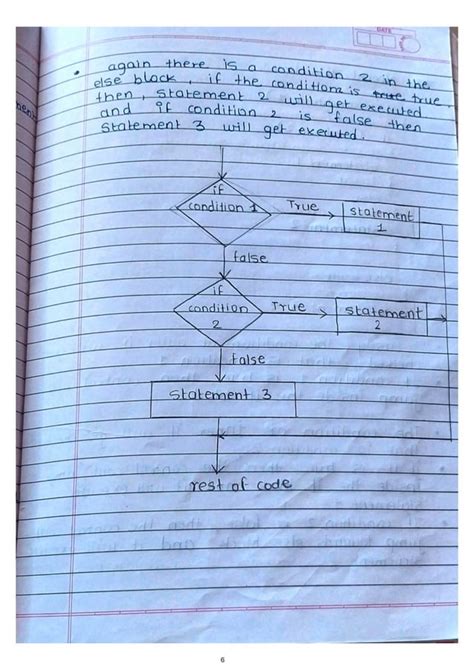 DATE
• again there is a condition 2 in the
else block, if the condition2 is true true
then, statement 2 will get executed
and if condition 2 is false then
statement 3 will get executed.
if
condition 1
True
statement
1
false
if
condition
2
True
statement
2
false
statement 3
rest of code
6